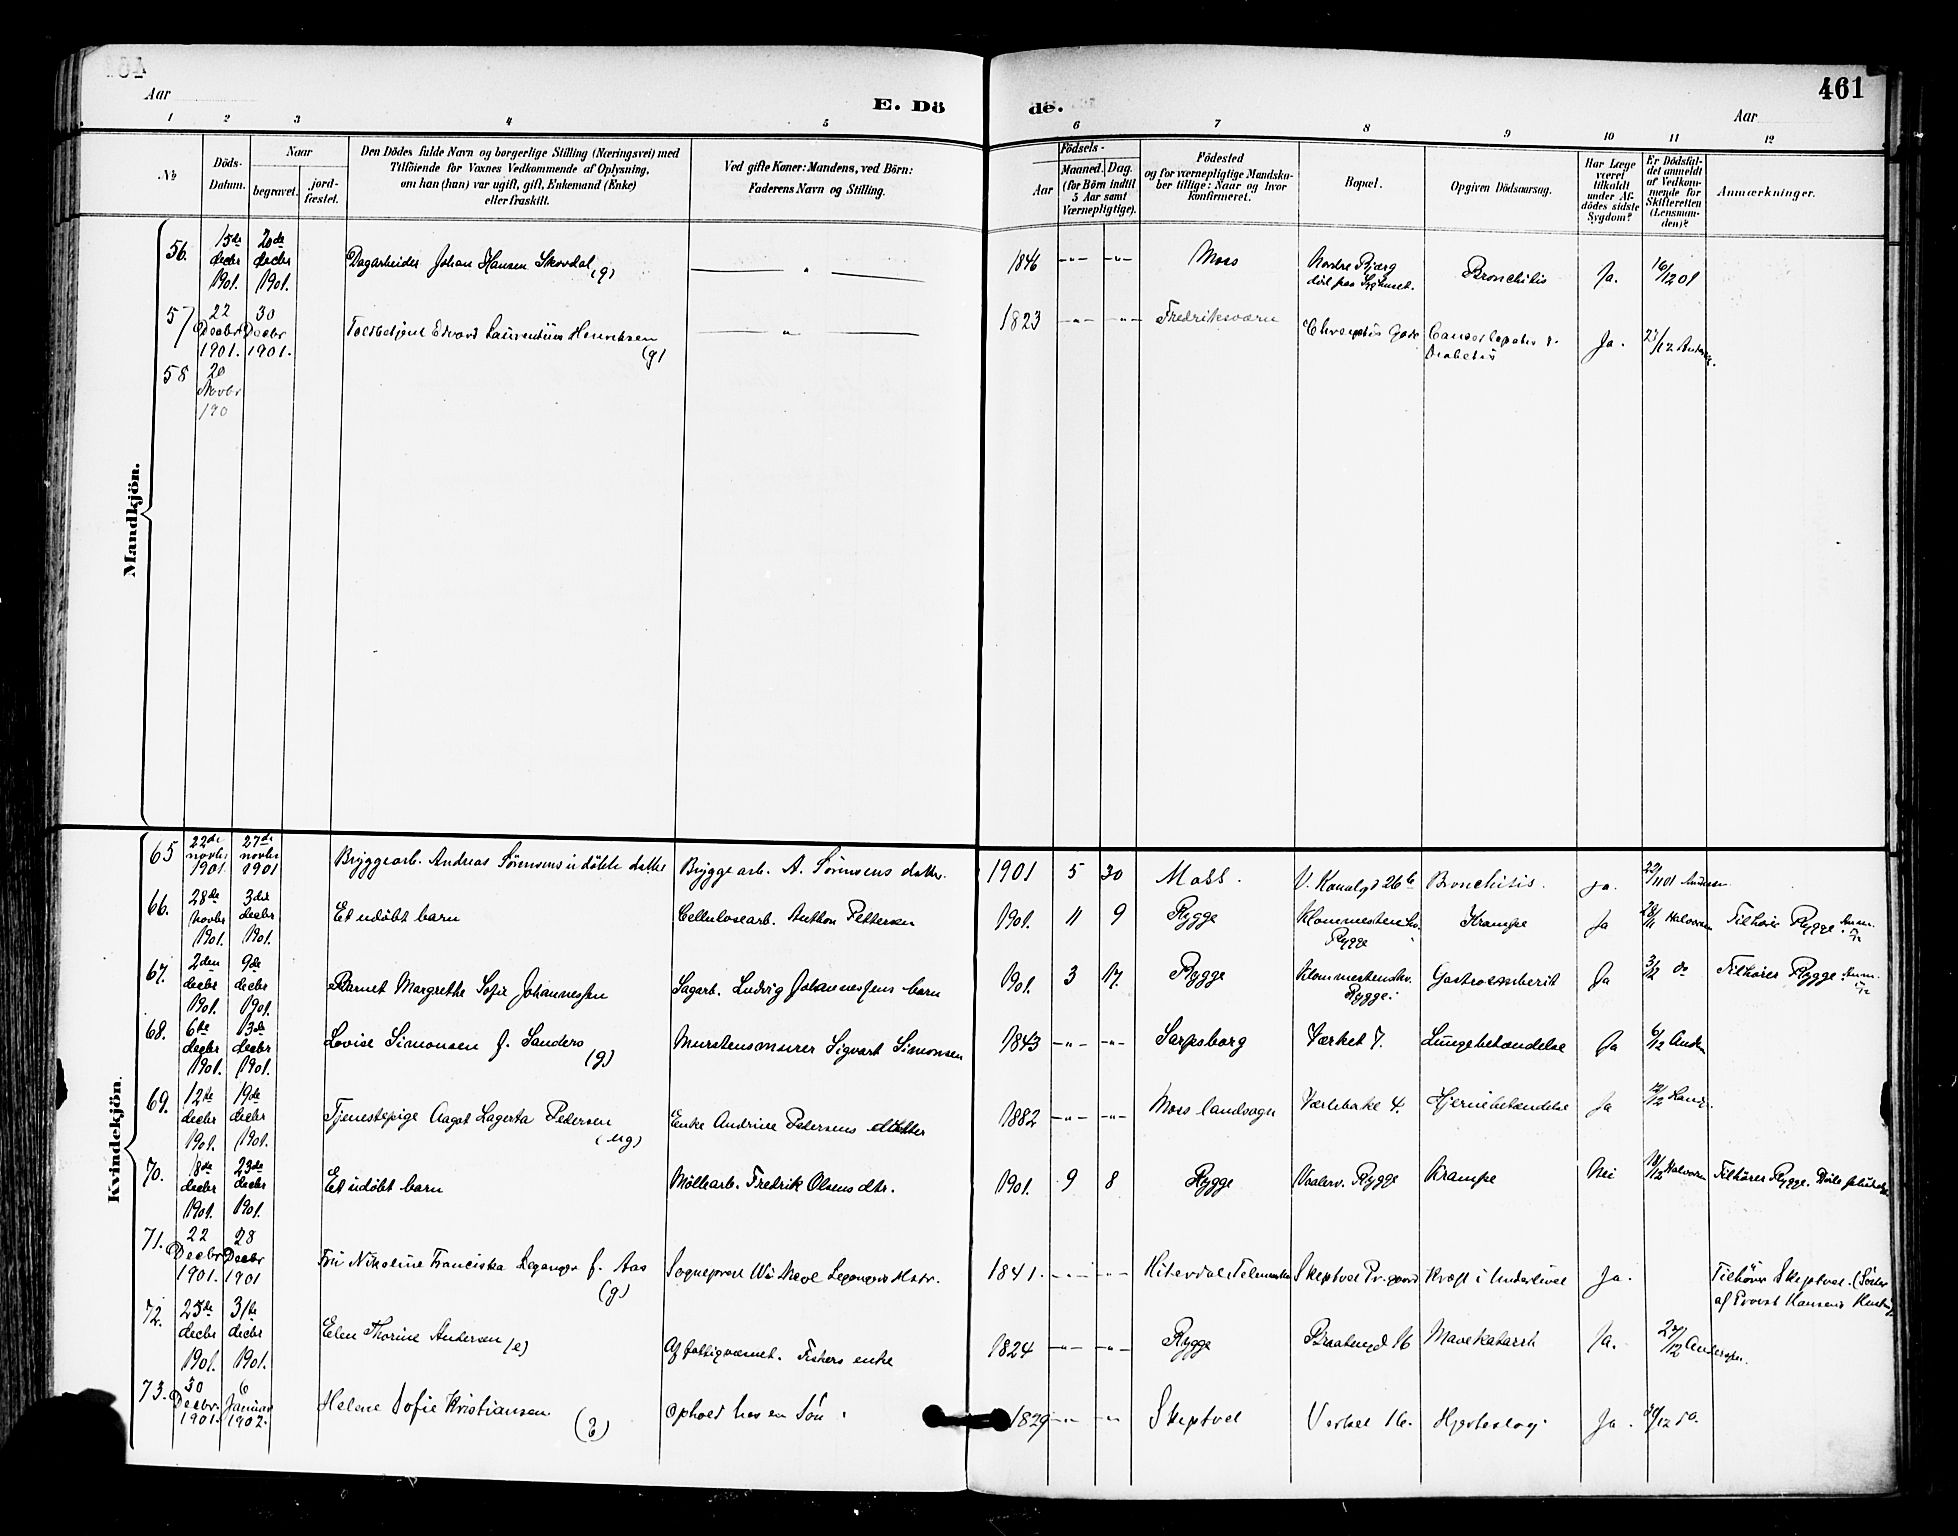 461
Aar
E. Dö
de.
Aar
1 2 3 4 5 6 7 8 9 10 11 12
No
Döds-Datum.
Naar
begravet.
jord-fæstet.
Den Dödes fulde Navn og borgerlige Stilling (Næringsvei) med
Tilföiende for Voxnes Vedkommende af Oplysning,
om han (hun) var ugift, gift, Enkemand (Enke)
eller fraskilt.
Ved gifte Koner: Mandens, ved Börn:
Faderens Navn og Stilling.
Födsels-
Aar
Maaned. Dag.
(for Börn indtil
5 Aar samt
Værnepligtige).
Födested
og for værnepligtige Mandska-
ber tillige: Naar og hvor
konfirmeret.
Bopæl.
Opgiven Dödsaarsag.
Har Læge
været
tilkaldt
under Af-
dödes sidste
Sygdom?
Er Dödsfal-
det anmeldt
af Vedkom-
mende for
Skifteretten
(Lensman-
den)?
Anmærkninger.
Mandkjön.
56. 15de decbr 1901. 20de decbr 1901. Dagarbeider Johan Hansen Skovdal (g) — " — 1846 -"- -"- Moss Nordre Bjerg død paa Sygehuset. Bronchitis Ja. 16/12 01
57 22 Decbr 1901. 30 Decbr 1901. Toldbetjent Edvard Laurentius Henriksen (g) — " — 1823 -"- -"- Fredriksværn Gade Cancer hepatis & Diabetis Ja. 23/12
58 20 Novbr 190
Kvindekjön.
65 22de novbr 1901 27de novbr 1901 Bryggearb. Andreas Sørensens udøbte datter Bryggearb. A. Sørensens datter. 1901 5 30 Moss. V. Kanalgd 26 b Bronchitis. Ja. 22/11 01 Andersen
66. 28de Novbr 1901. 3die decbr 1901. Et udøbt barn Cellulosearb. Anthon Pettersen 1901. 11 9 Rygge Rygge Krampe Ja 28/11 Halvorsen Tilhører Rygge.
67. 2den decbr 1901. 9de decbr 1901. Barnet Margrethe Sofie Johannessen Sagarb. Ludvig Johannessens barn 1901. 3 17. Rygge Rygge. Gastroenterit Ja 3/12 do Tilhører Rygge
68. 6te decbr 1901. 13de decbr 1901. Lovise Simonsen f. Sanders (g) Murstensmurer Sigvart Simonsen 1843 -"- -"- Sarpsborg Værket 7. Lungebetændelse Ja 6/12
69. 12te decbr 1901. 19de decbr 1901. Tjenestepige Aagot Lagerta Pedersen (ug) Enke Andrine Pedersens datter 1882 -"- -"- Moss landsogn Værlebakke 4. Hjernebetændelse Ja 12/12
70. 18de decbr 1901. 23de decbr 1901. Et udøbt barn Møllearb. Fredrik Olsens dtr. 1901. 9 8 Rygge Vaalerv. Rygge Krampe Nei 18/12 Halvorsen Tilhører Rygge.
71. 22 Decbr 1901. 28 Decbr 1901 Fru Nikoline Franciska Leganger f. Aas (g) Sogneprest Leganger 1841. -"- -"- Hiterdal Telemarken Skiptvet Pr.gaard Kræft i Underlivet Ja. Tilhører Skiptvet. (Søster af Provst Hansens Hustru)
72. 25de decbr 1901. 31te decbr 1901. Elen Thorine Andersen (e) Af fattigvæsnet. Fiskers enke 1824 -"- -"- Rygge 16 Mavekatarrh Ja. 27/12 Andersen.
73. 30 Decbr. 1901. 6 Januar 1902. Helene Sofie Kristiansen (E) Ophold hos en Søn. 1829 -"- -"- Skiptvet Verket 16. Ja. 30/12 do.